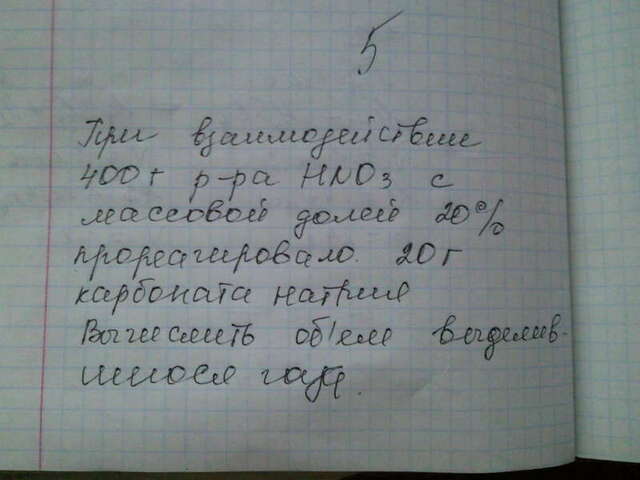 5
При взаимодействие
400 г р-ра HNO3 с
массовой долей 20%
прореагировало 20 г
карбоната натрие
Вычислить об'ём выделив-
шегося газа.